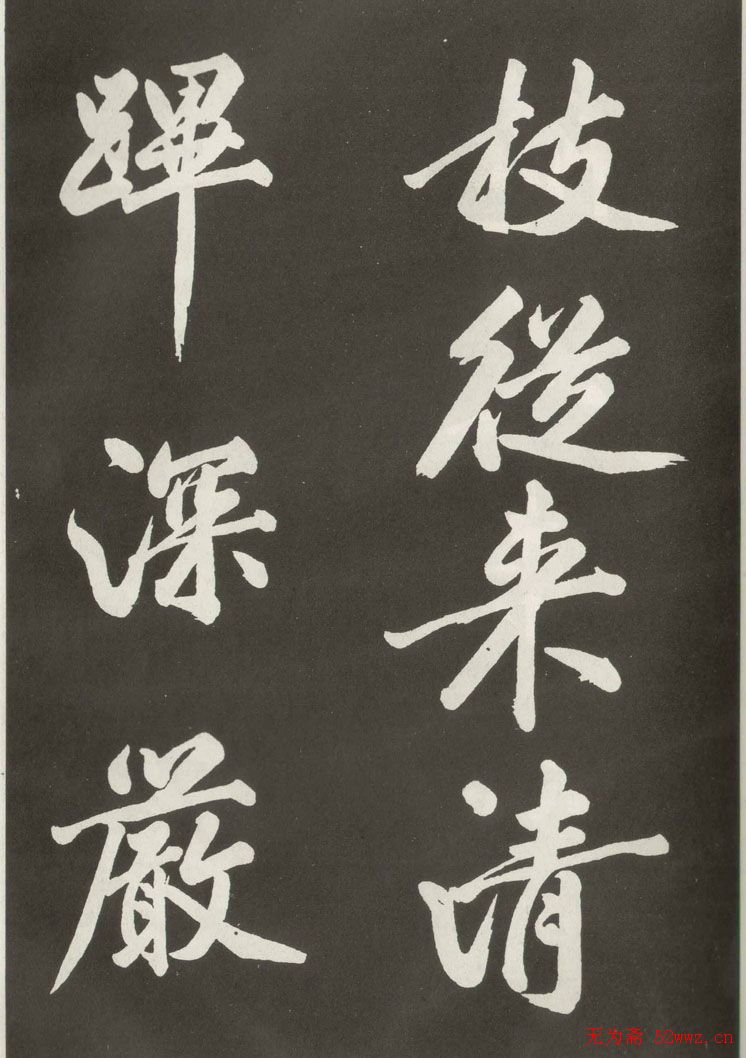 技從來清
蹕深嚴
无为斋 52wwz.cn